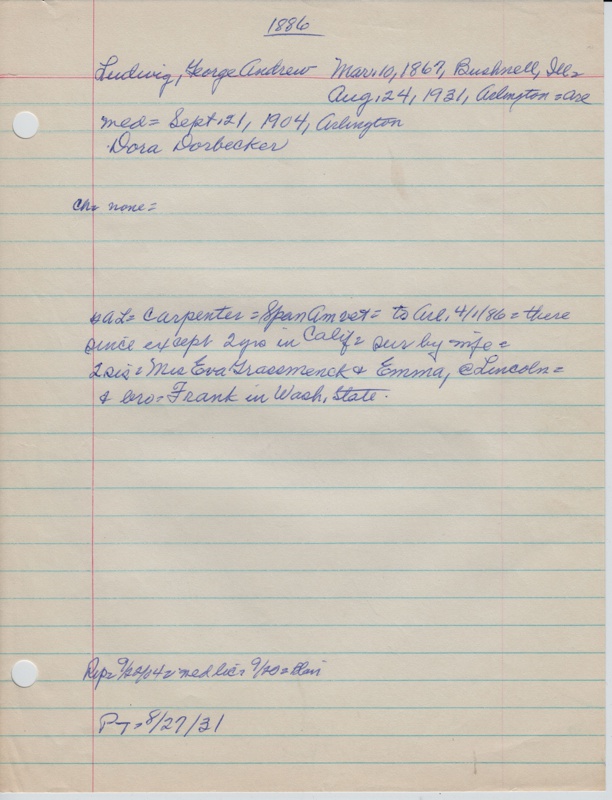 1886
Ludwig, George Andrew Mar. 10, 1867, Bushnell, Ill=
Aug. 24, 1931, Arlington = are
med = Sept. 21, 1904, Arlington
Dora Dorbecker
Ch = none =
a L = Carpenter = Span Am vet = to Arl. 4/1/86 = there
since except 2 yrs in Calif = sur by wife =
2 sis = Mrs Eva Grassmenck & Emma, @ Lincoln =
& bro = Frank in Wash. State.
Rep = 9/22/04 = med lic = 9/20 =
P T = 8/27/31